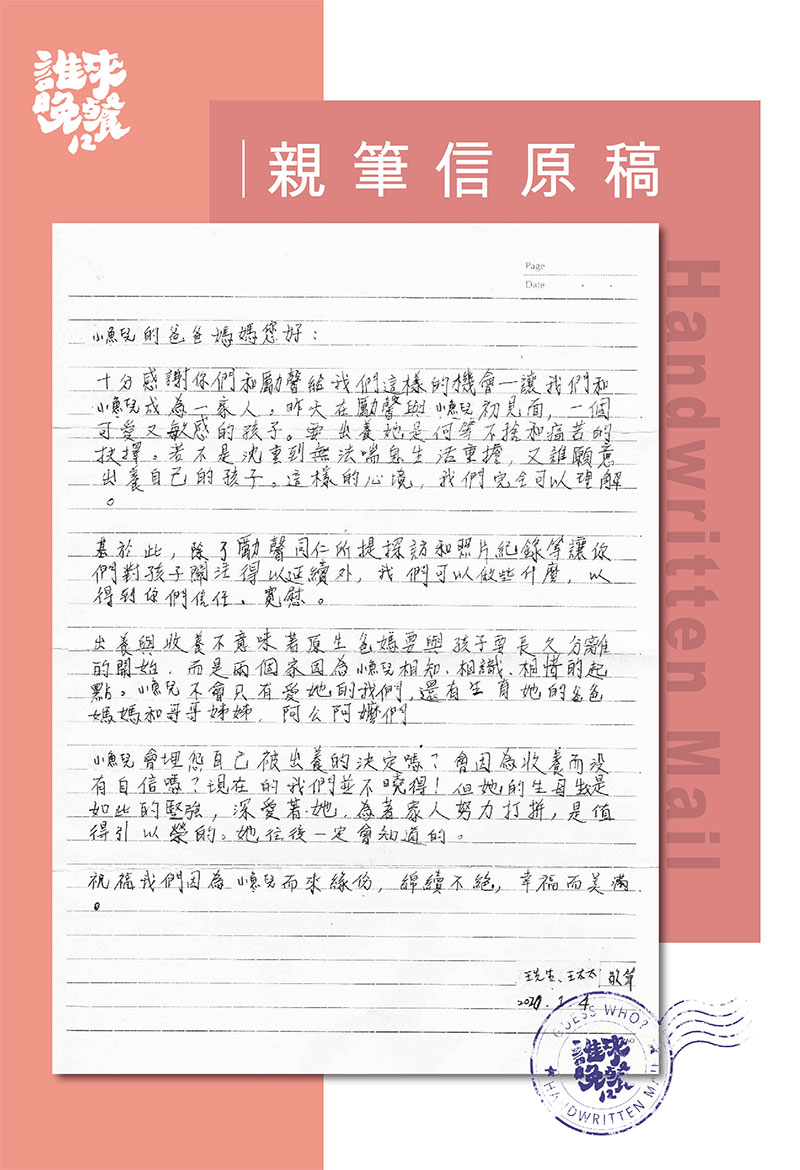 誰來
晚餐
12
親筆信原稿
Handwritten Mail
Page
Date
小魚兒的爸爸媽媽您好：
十分感謝你們和勵馨給我們這樣的機會—讓我們和
小魚兒成為一家人。昨天在勵馨與小魚兒初見面，一個
可愛又敏感的孩子。要出養她是何等不捨和痛苦的
抉擇。若不是沈重到無法喘息生活重擔，又誰願意
出養自己的孩子。這樣的心境，我們完全可以理解
。
基於此，除了勵馨同仁所提探訪和照片紀錄等讓你
們對孩子關注得以延續外，我們可以做些什麼，以
得到你們信任、寬慰。
出養與收養不意味著原生爸媽要與孩子要長久分離
的開始，而是兩個家因為小魚兒相知、相識、相惜的起
點。小魚兒不會只有愛她的我們，還有生育她的爸爸
媽媽和哥哥姊姊，阿公阿嬤們
小魚兒會埋怨自己被出養的決定嗎？會因為收養而沒
有自信嗎？現在的我們並不曉得！但她的生母是
如此的堅強，深愛著她，為著家人努力打拼，是值
得引以榮的。她往後一定會知道的。
祝福我們因為小魚兒而來緣份，綿續不絕，幸福而美滿
。
王先生、王太太 敬筆
GUESS WHO?
誰來
晚餐
12
HANDWRITTEN MA